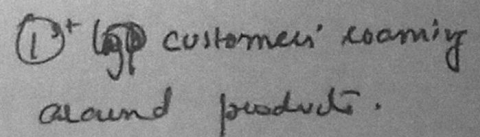 ① customers' roaming
around products.